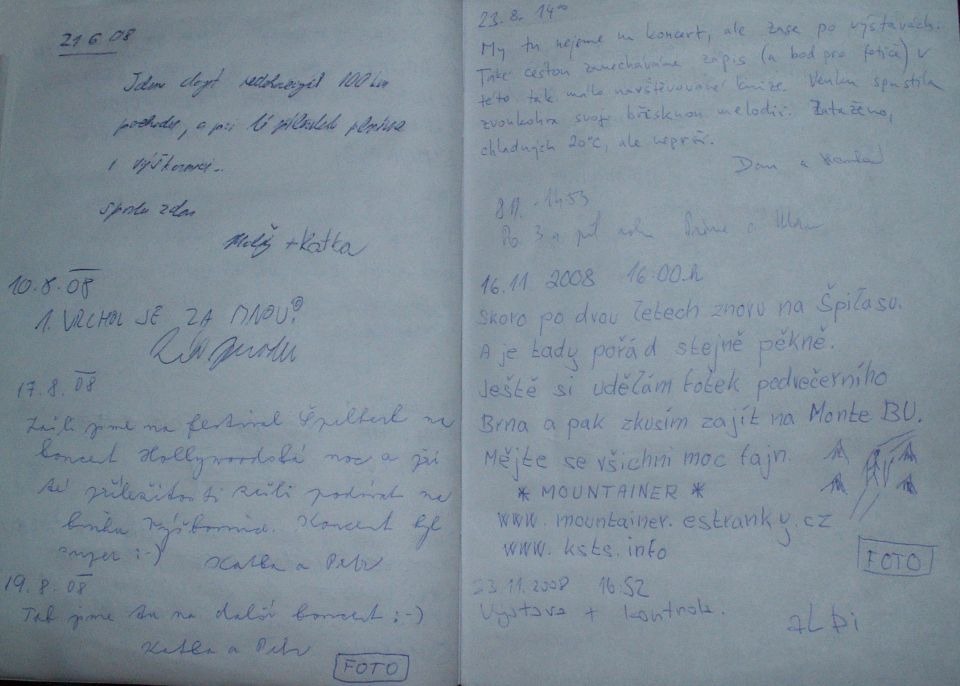 21 6 08
Jdem dojít nedokončený 100 km
pochod, a při té příležitosti
i výškovnici...
spoustu zdar
+ Katka
10.8.08
1. VRCHOL JE ZA MNOU!
17.8.08
Zašli jsme na festival Špilberk na
koncert Hollywoodská noc a při
té příležitosti zašli podívat na
knihu výškovnice. Koncert byl
super :-)
Katka a Petr
19.8.08
Tak jsme tu na další koncert :-)
Katka a Petr
FOTO
23.8. 14°°
My tu nejsme na koncert, ale zase po výstavách.
Také cestou zanecháváme zápis (a bod pro fotice) v
této tak málo navštěvované knize. Venku spustila
zvonkohra svoji břesknou melodii. Zataženo,
chladných 20°C, ale neprší.
Dan a
- 14:53
Po 3 a půl
16.11. 2008 16:00.h
Skoro po dvou letech znovu na Špilasu.
A je tady pořád stejně pěkně.
Ještě si udělám foťek podvečerního
Brna a pak zkusím zajít na Monte BU.
Mějte se všichni moc fajn.
* MOUNTAINER *
www.mountainer.estranky.cz
www.ksts.info
FOTO
23.11.2008 16:52
Výstava + kontrola.